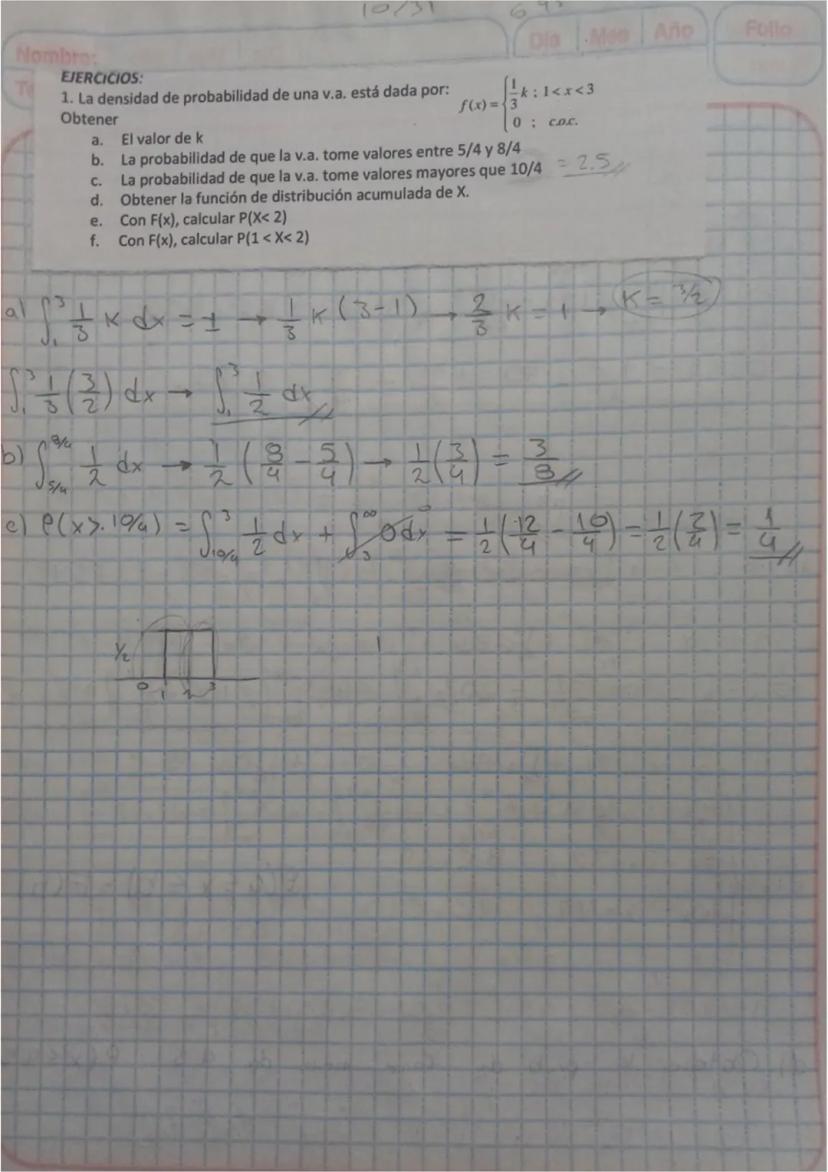 10/31
Día Mes Año Folio
Nombre:
EJERCICIOS:
1. La densidad de probabilidad de una v.a. está dada por: f(x) = { 1/3 k ; 1 < x < 3
0 ; c.o.c.
Obtener
a. El valor de k
b. La probabilidad de que la v.a. tome valores entre 5/4 y 8/4
c. La probabilidad de que la v.a. tome valores mayores que 10/4 = 2.5
d. Obtener la función de distribución acumulada de X.
e. Con F(x), calcular P(X< 2)
f. Con F(x), calcular P(1 < X< 2)
a) ∫₁³ 1/3 K dx = 1 → 1/3 K (3-1) → 2/3 K = 1 → K = 3/2
∫₁³ 1/3 (3/2) dx → ∫₁³ 1/2 dx
b) ∫_{5/4}^{8/4} 1/2 dx → 1/2 (8/4 - 5/4) → 1/2 (3/4) = 3/8
c) P(x > 10/4) = ∫_{10/4}^{3} 1/2 dx + ∫_{3}^{∞} 0 dx = 1/2 (12/4 - 10/4) = 1/2 (2/4) = 1/4
1/2
0 1 2 3